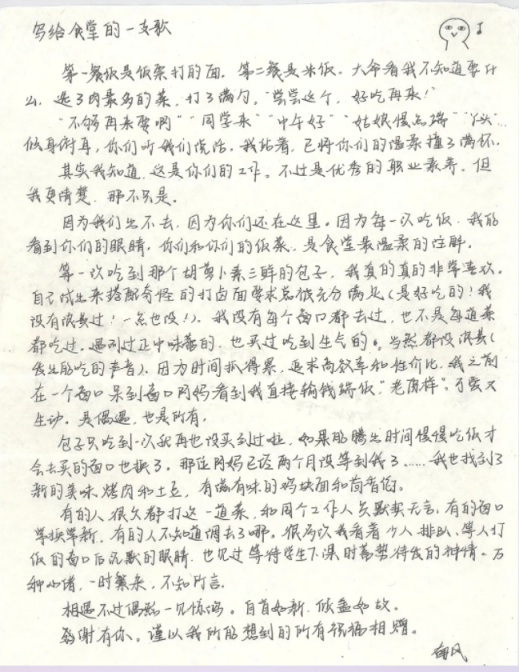 写给食堂的一支歌
第一餐饭是饭菜打的面。第二餐是米饭。大爷看我不知道要什
么,选了肉最多的菜,打了满勺,"尝尝这个,好吃再来!"
"不够再来要啊""同学来""中午好""姑娘慢点端"
你们听我们说话。我站着,已将你们的温柔揣了满怀。
其实我知道,这是你们的工作。不过是优秀的职业素养。但
我更清楚,那不只是。
因为我们出不去,因为你们还在这里。因为每一次吃饭,我能
看到你们的眼睛。你们和你们的饭菜,是食堂最温柔的注解。
第一次吃到那个胡萝卜素三鲜的包子,我真的真的非常喜欢。
自己试出来搭配奇怪的打卤面要求总能充分满足(是好吃的!我
没有浪费过!一点也没!)。我没有每个窗口都去过,也不是每道菜
都吃过。遇到过正中味蕾的,也买过吃到生气的。当然都没浪费(
发出能吃的声音)。因为时间抓得紧,追求高效率和性价比,我之前
在一个窗口呆到窗口阿妈看到我直接输钱端饭,"老两样"。可爱又
生动。是偶遇,也是所有。
包子只吃到一次就再也没买到过啦,如果能腾出时间慢慢吃饭才
会去买的窗口也换了。那位阿妈已经两个月没等到我了……我也找到了
新的美味,烤肉和土豆,有滋有味的鸡块面和
有的人很久都打这一道菜,和同个工作人员默契无言。有的窗口
早换早新,有的人不知道调去了哪。很多次我看着少人排队、等人打
饭的窗口后沉默的眼睛,也见过等待学生下课时蓄势待发的神情。万
种心绪,一时繁杂,不知所言。
相遇不过偶然一见惊鸿。白首如新,倾盖如故。
感谢有你。谨以我所能想到的所有祝福相赠。